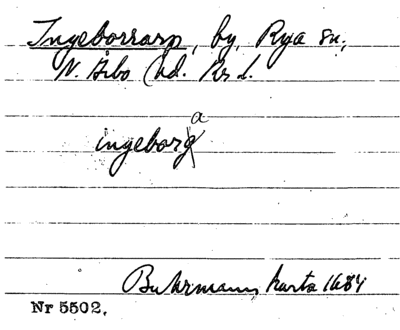 Ingeborrarp, by, Rya sn,
N. Åsbo hd. Kr. l.
a
ingeborg
Buhrmanns karta 1684
Nr 5502.